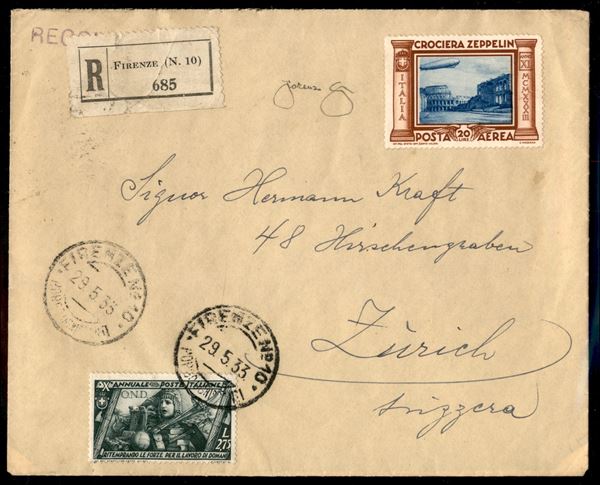 R FIRENZE (N. 10)
685
CROCIERA ZEPPELIN
ITALIA
ANNO XI
MCMXXXIII
POSTA 20 AEREA
LIRE
Signor Hermann Kraft
48 Hirschengraben
Zürich
Svizzera
FIRENZE Nº 10
29.5.33
FIRENZE Nº 10
29.5.33
X ANNUALE POSTE ITALIANE
O.N.D.
L 2,75
RITEMPRANDO LE FORZE PER IL LAVORO DI DOMANI